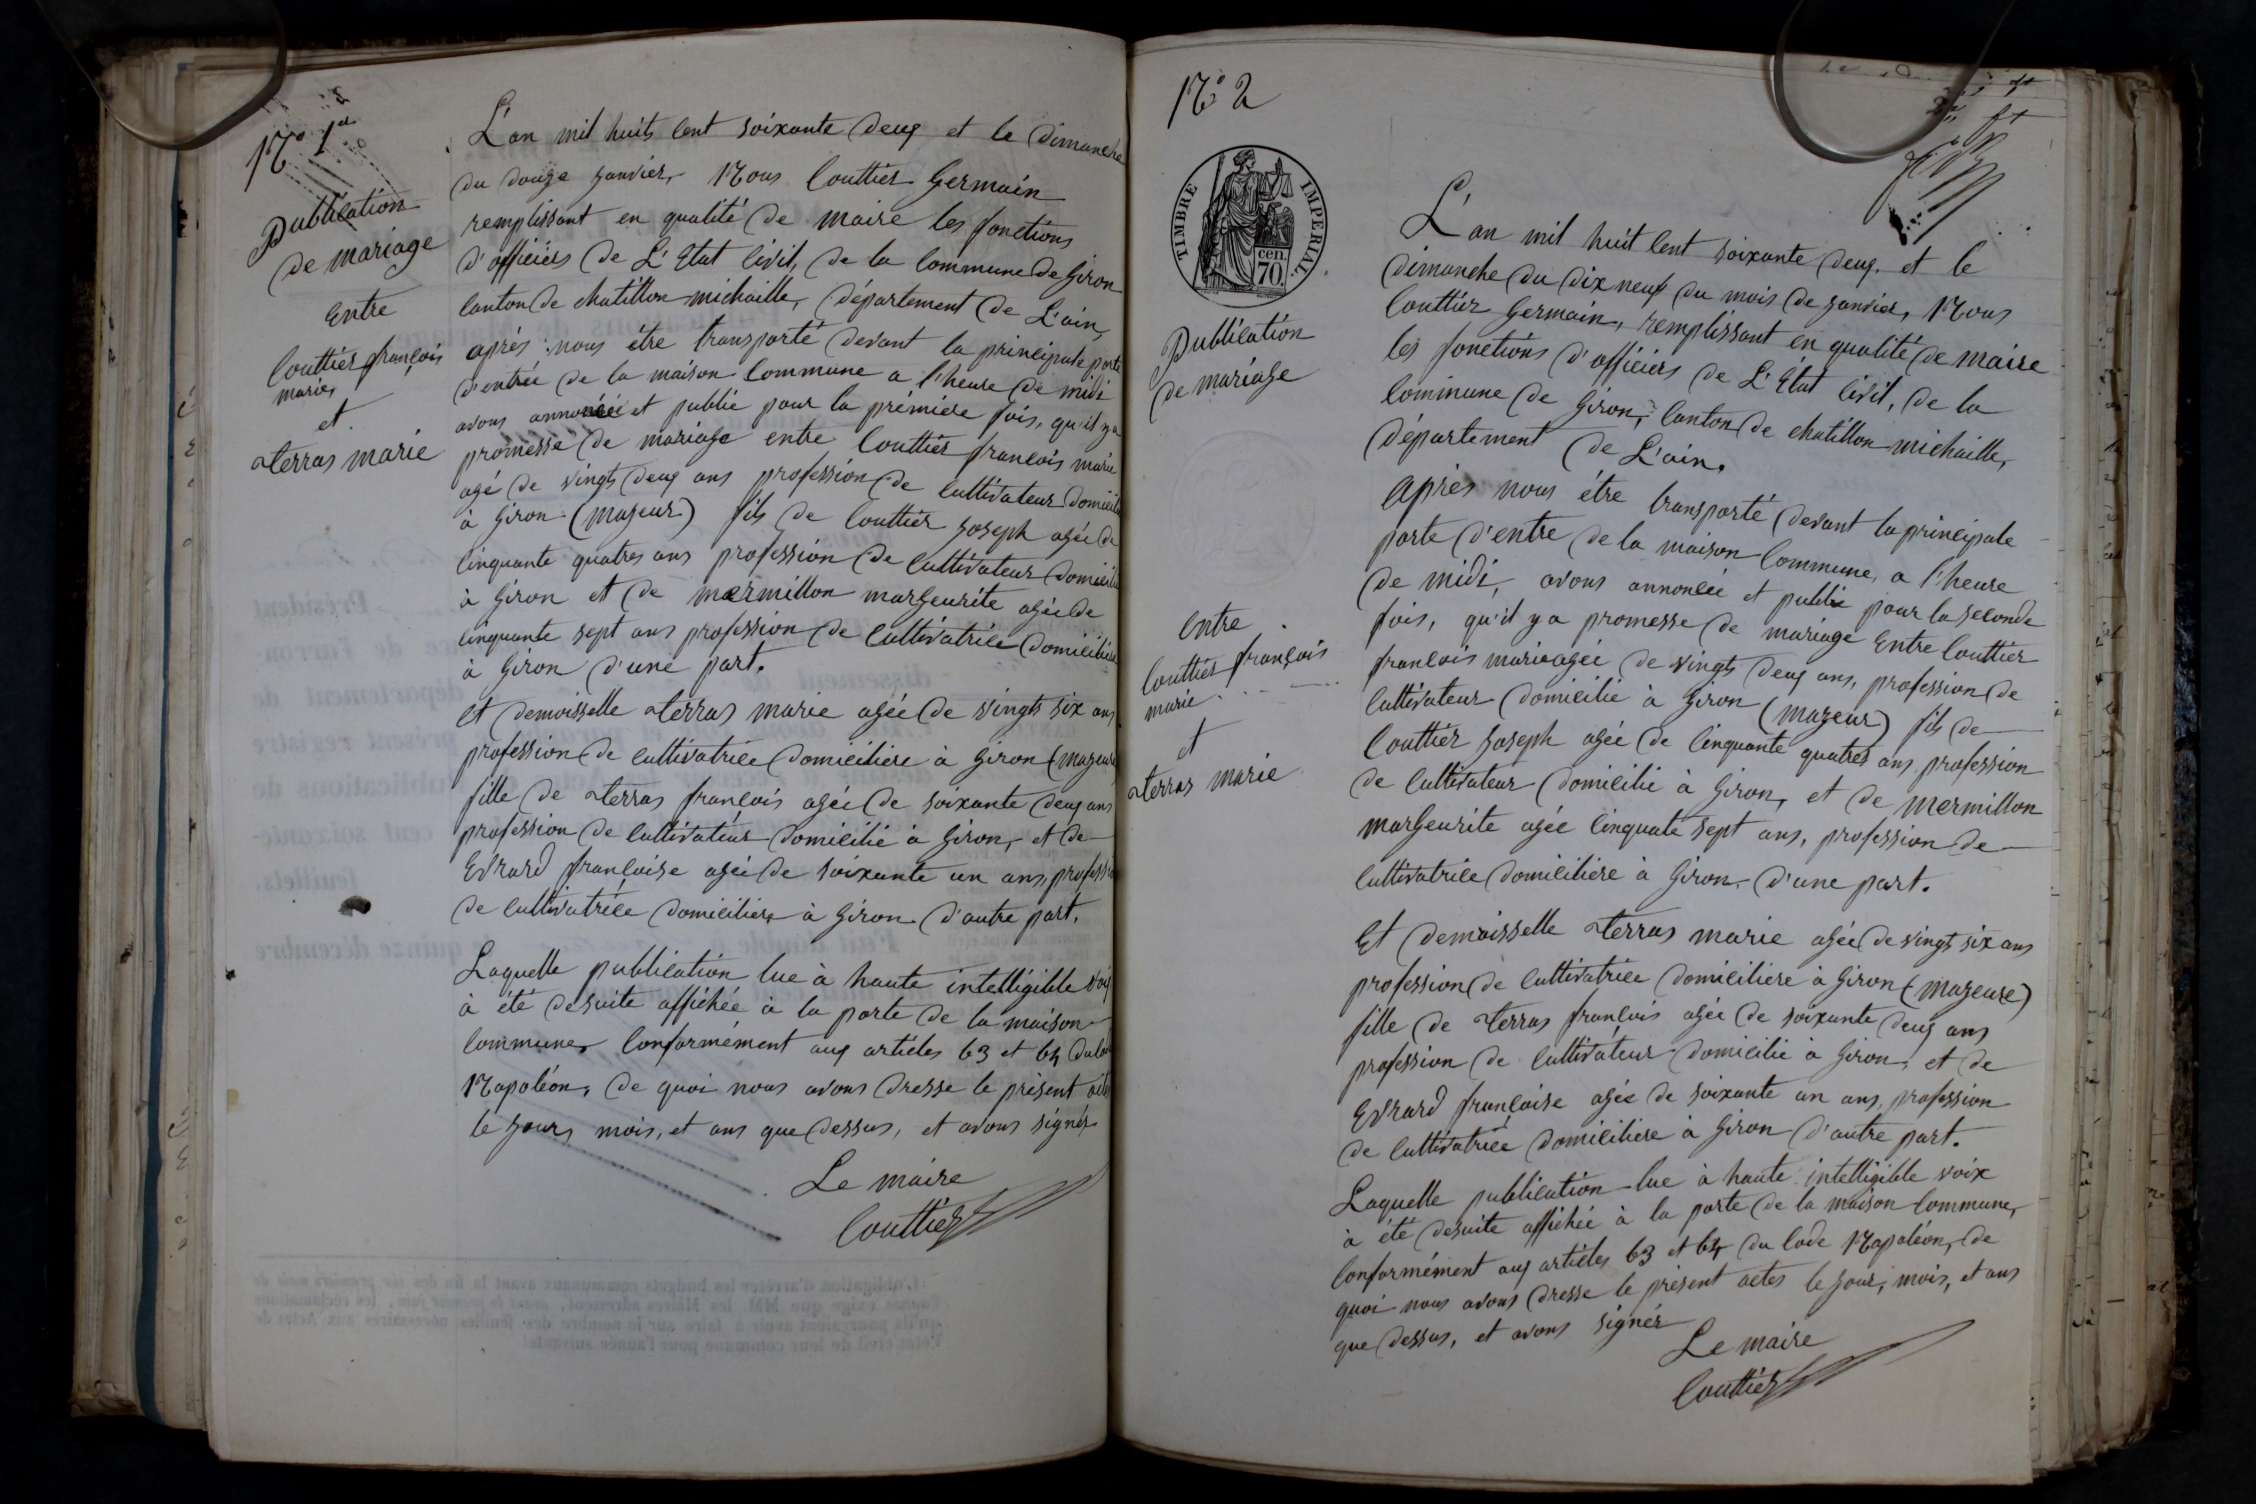 N° 1er
Publication
de mariage
Entre
Couttier françois
marie,
et
terras marie
L'an mil huits Cent soixante deux et le Dimanche
du douze janvier, Nous Couttier Germain
remplissant en qualité de maire les fonctions
d'officiers de L'Etat Civil, de la Commune de Giron
Canton de chatillon michaille, département de L'ain,
après nous être transporté devant la principale porte
d'entrée de la maison Commune a l'heure de midi
avons annoncée et publie pour la prémière fois, qu'il y a
promesse de mariage entre Couttier francois marie
agé de vingts deux ans profession de Cultivateur domicilié
à Giron (majeur) fils de Couttier Joseph agée de
Cinquante quatres ans profession de Cultivateur domicilié
à Giron et de mermillon margeurite agée de
cinquante sept ans profession de Cultivatrice domiciliere
à Giron d'une part.
Et demoisselle terras marie agée de vingts six ans
profession de cultivatrice domiciliere à Giron (majeure)
fille de terras francois agée de soixante deux ans
profession de Cultivateur domicilié à Giron, et de
Evrard francoise agée de soixante un ans, profession
de Cultivatrice domiciliere à Giron d'autre part.
Laquelle publication lue à haute intelligible voix
à été desuite affichée à la porte de la maison
Commune, Conformément aux articles 63 et 64 du Code
Napoléon, de quoi nous avons dresse le présent acte
le jour, mois, et ans que dessus, et avons signés
Le maire
Couttier
N° 2
TIMBRE IMPERIAL.
70 cen.
Publication
de mariage
Entre
Couttier françois
marie
et
terras marie
L'an mil huit Cent soixante deux. et le
dimanche du dix neuf du mois de janvier, Nous
Couttier Germain, remplissant en qualité de maire
les fonctions d'officiers de L'Etat Civil, de la
Commune de Giron, Canton de chatillon michaille,
département de L'ain,
Après nous être transporté devant la principale
porte d'entre de la maison Commune, a l'heure
de midi, avons annoncée et publie pour la seconde
fois, qu'il y a promesse de mariage Entre Couttier
francois marie agée de vingts deux ans, profession de
Cultivateur domicilié à Giron (majeur) fils de
Couttier Joseph agée de Cinquante quatres ans profession
de Cultivateur domicilié à Giron, et de mermillon
margeurite agée Cinquate sept ans, profession de
Cultivatrice domiciliere à Giron d'une part.
Et demoisselle terras marie agée de vingt six ans
profession de Cultivatrice domiciliere à Giron (majeure)
fille de terras francois agée de soixante deux ans
profession de Cultivateur domicilié à Giron, et de
Evrard francoise agée de soixante un ans, profession
de Cultivatrice domiciliere à Giron d'autre part.
Laquelle publication lue à haute intelligible voix
à été desuite affichée à la porte de la maison Commune,
Conformément aux articles 63 et 64 du Code Napoléon, de
quoi nous avons dresse le présent actes le jour, mois, et ans
que dessus, et avons signés
Le maire
Couttier